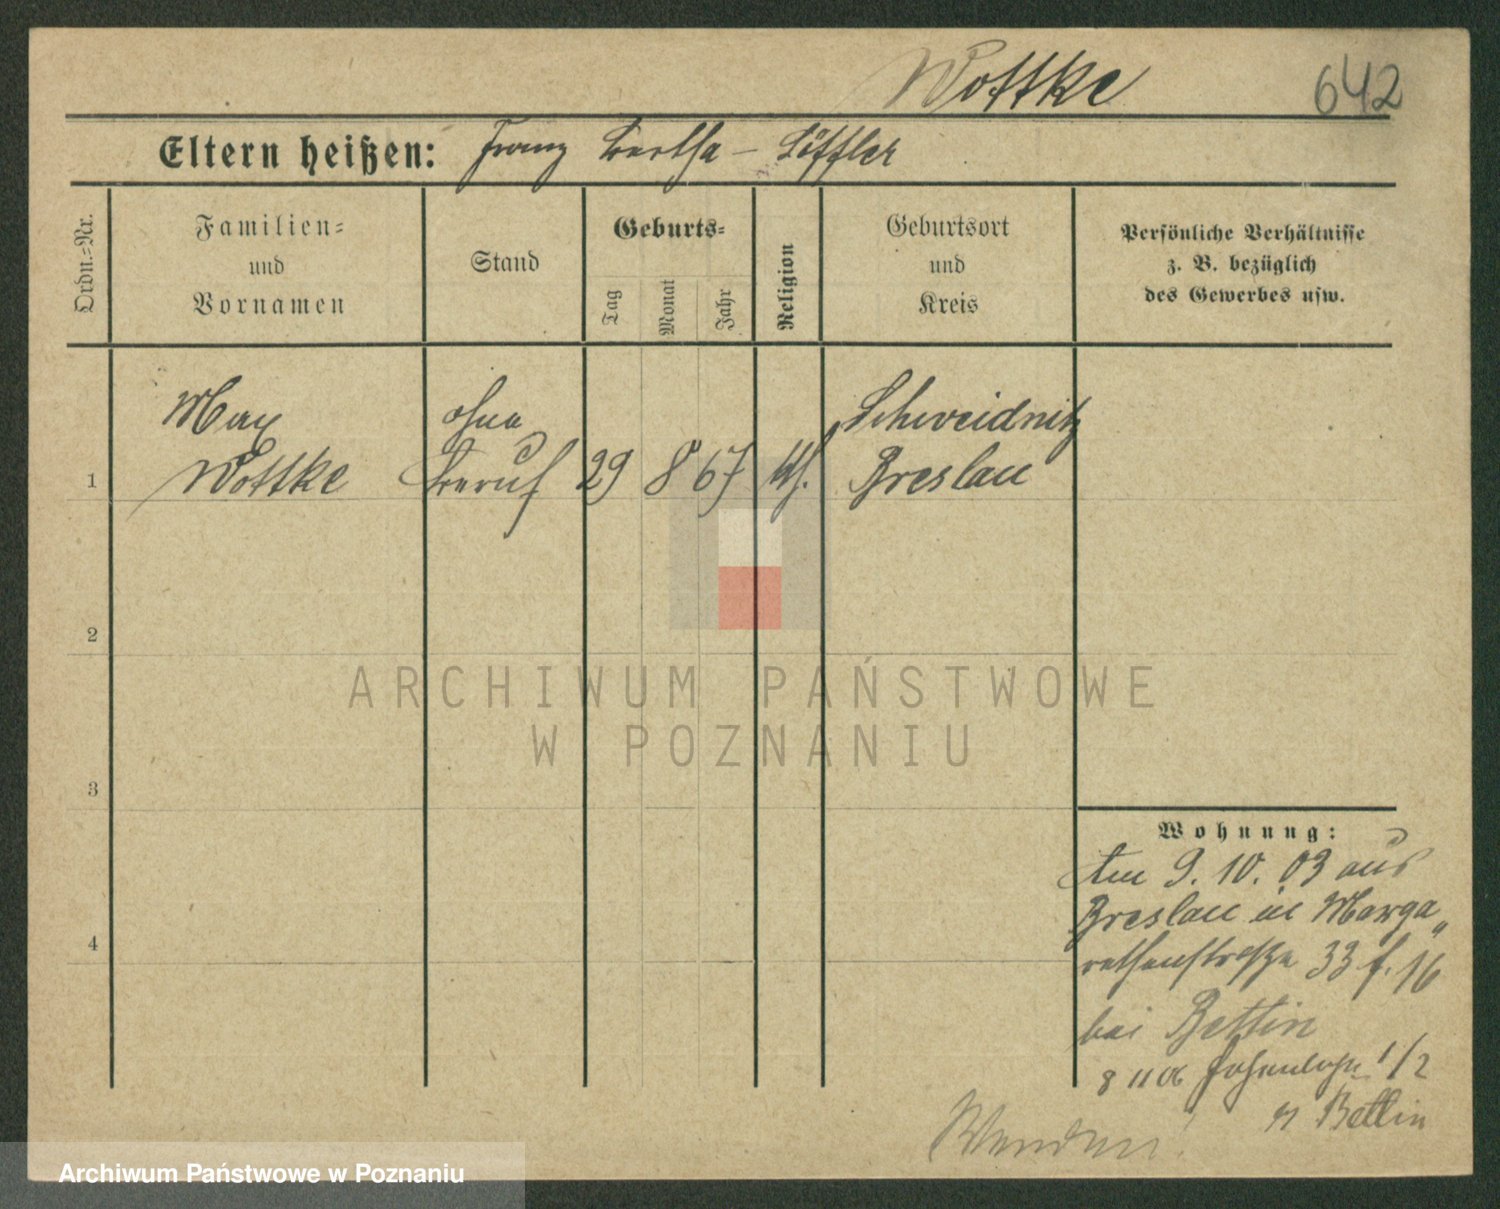 Wottke 642
Eltern heißen: Franz Bertha – Löffler
Ordn.-Nr.
Familien-
und
Vornamen
Stand
Geburts-
Tag
Monat
Jahr
Religion
Geburtsort
und
Kreis
Persönliche Verhältnisse
z. B. bezüglich
des Gewerbes usw.
Max ohne Schweidnitz
1 Wottke Beruf 29 8 67 kth. Breslau
2
3
4
ARCHIWUM PAŃSTWOWE
W POZNANIU
Wohnung:
Am 9. 10. 03 aus
Breslau in Marga„
rethenstraße 33 f. 16
bei Bettin
8 11 06 1/2
Bettin
Wenden!
Archiwum Państwowe w Poznaniu